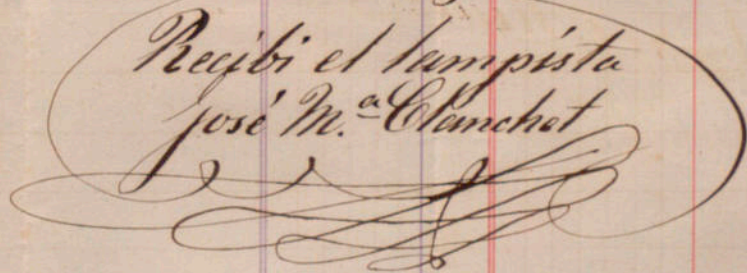 Recibi el lampista
José M.ª Clanchet